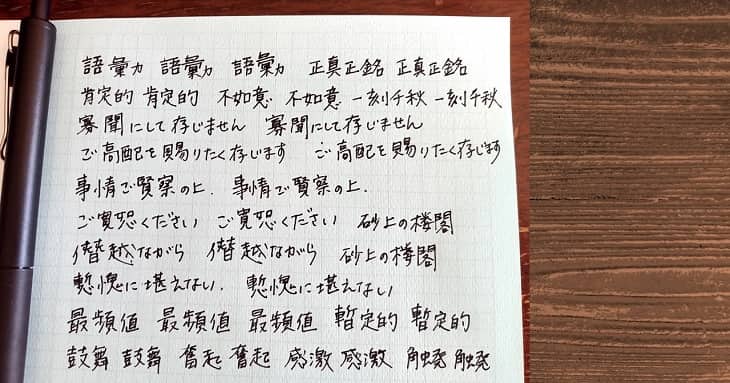 語彙力 語彙力 語彙力 正真正銘 正真正銘
肯定的 肯定的 不如意 不如意 一刻千秋 一刻千秋
寡聞にして存じません 寡聞にして存じません
ご高配を賜りたく存じます ご高配を賜りたく存じます
事情ご賢察の上、 事情ご賢察の上、
ご寛恕ください ご寛恕ください 砂上の楼閣
僭越ながら 僭越ながら 砂上の楼閣
慙愧に堪えない. 慙愧に堪えない
最頻値 最頻値 最頻値 暫定的 暫定的
鼓舞 鼓舞 奮起 奮起 感激 感激 触発 触発